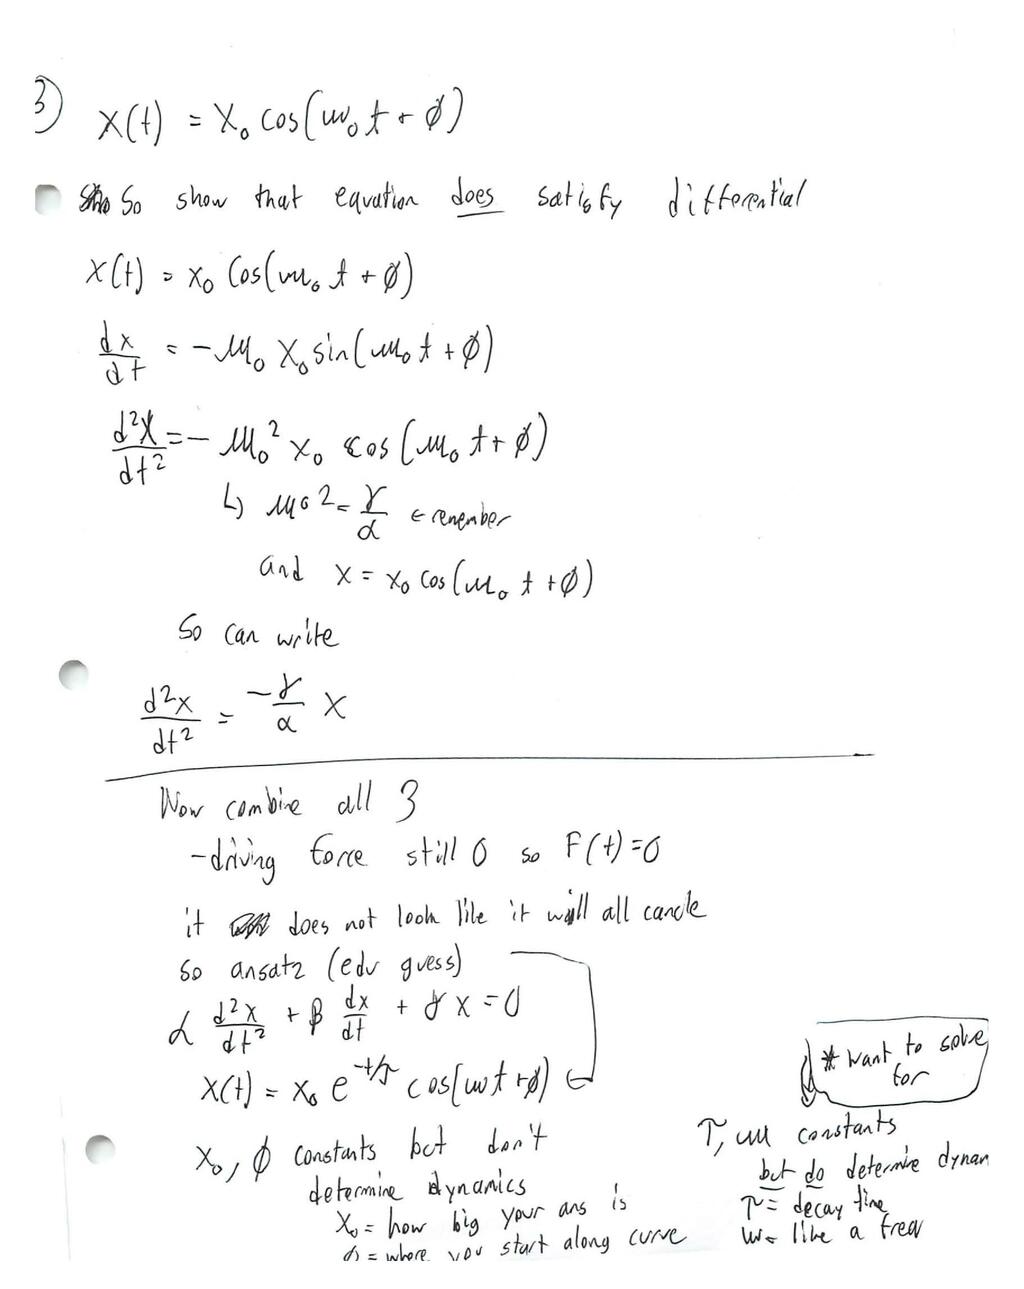 3) x(t) = x₀ cos(ω₀t + φ)
So show that equation does satisfy differential
x(t) = x₀ cos(ω₀ t + φ)
dx/dt = -ω₀ x₀ sin(ω₀ t + φ)
d²x/dt² = -ω₀² x₀ cos(ω₀ t + φ)
↳ ω₀2 = γ/α ← remember
and x = x₀ cos(ω₀ t + φ)
So can write
d²x/dt² = -γ/α x
Now combine all 3
- driving force still 0 so F(t) = 0
it does not look like it will all cancle
So ansatz (edu guess)
α d²x/dt² + β dx/dt + γ x = 0
x(t) = x₀ e^(-t/τ) cos(ωt + φ) ←
* want to solve
for
x₀, φ constants but don't
determine dynamics
x₀ = how big your ans is
φ = where you start along curve
τ, ω constants
but do determine dynam
τ = decay time
ω = like a freq